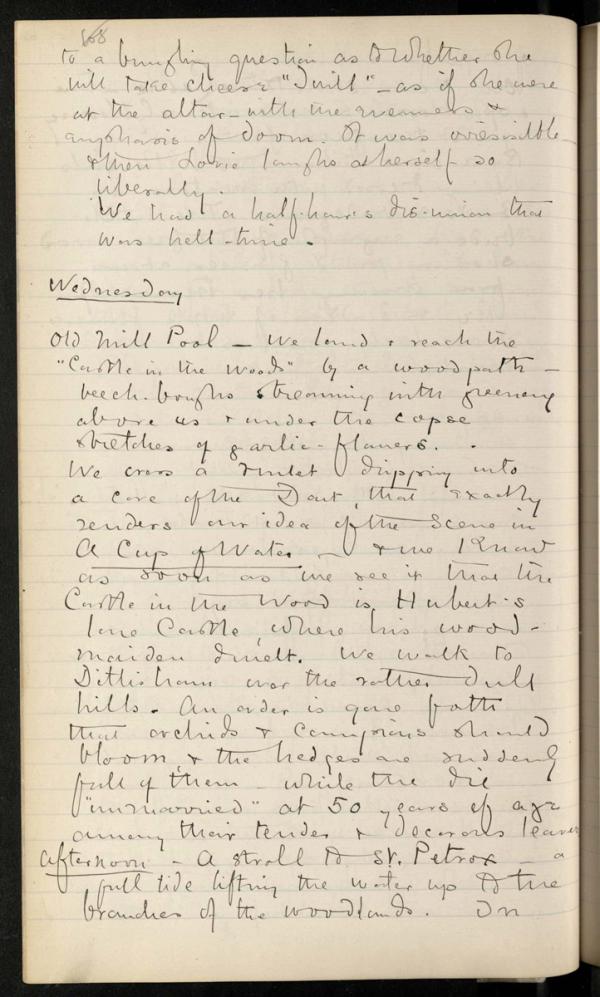 168
to a bungling question as to whether she
will take cheese "I will" - as if she were
at the altar - with the &
emphasis of doom. It was irresistible -
& then laughs at herself so
liberally.
We had a half-hour's dis-union that
was hell-time.
Wednesday
Old Mill Pool - We land & reach the
"Castle in the Woods" by a woodpath -
beech-boughs streaming with greenery
above us & under the copse
stretches of garlic-flowers.
We cross a runlet dripping into
a cove of the Dart, that exactly
renders our idea of the Scene in
A Cup of Water - & we know
as soon as we see it that the
Castle in the Wood is Hubert's
lone Castle, where his wood-
maiden dwelt. We walk to
Dittisham over the rather dull
hills. An order is gone forth
that orchids & campions should
bloom, & the hedges are suddenly
full of them - while the
"unmarried" at 50 years of age
among their tender & decorous leaves
Afternoon - A stroll to St. Petrox - a
full tide lifting the water up to the
branches of the woodlands. In